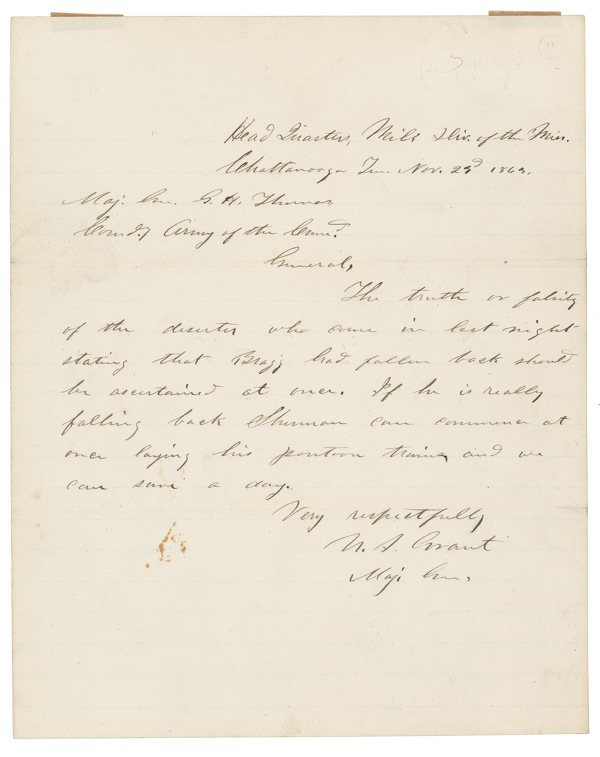 Head Quarters, Mil. Div. of the Miss.
Chattanooga Ten. Nov. 23d 1863.
Maj. Gen. G. H. Thomas
Comd.g Army of the Cumd.
General,
The truth or falsity
of the deserter who came in last night
stating that Bragg had fallen back should
be ascertained at once. If he is really
falling back Sherman can commence at
once laying his pontoon trains and we
can save a day.
Very respectfully
U. S. Grant
Maj. Gen.